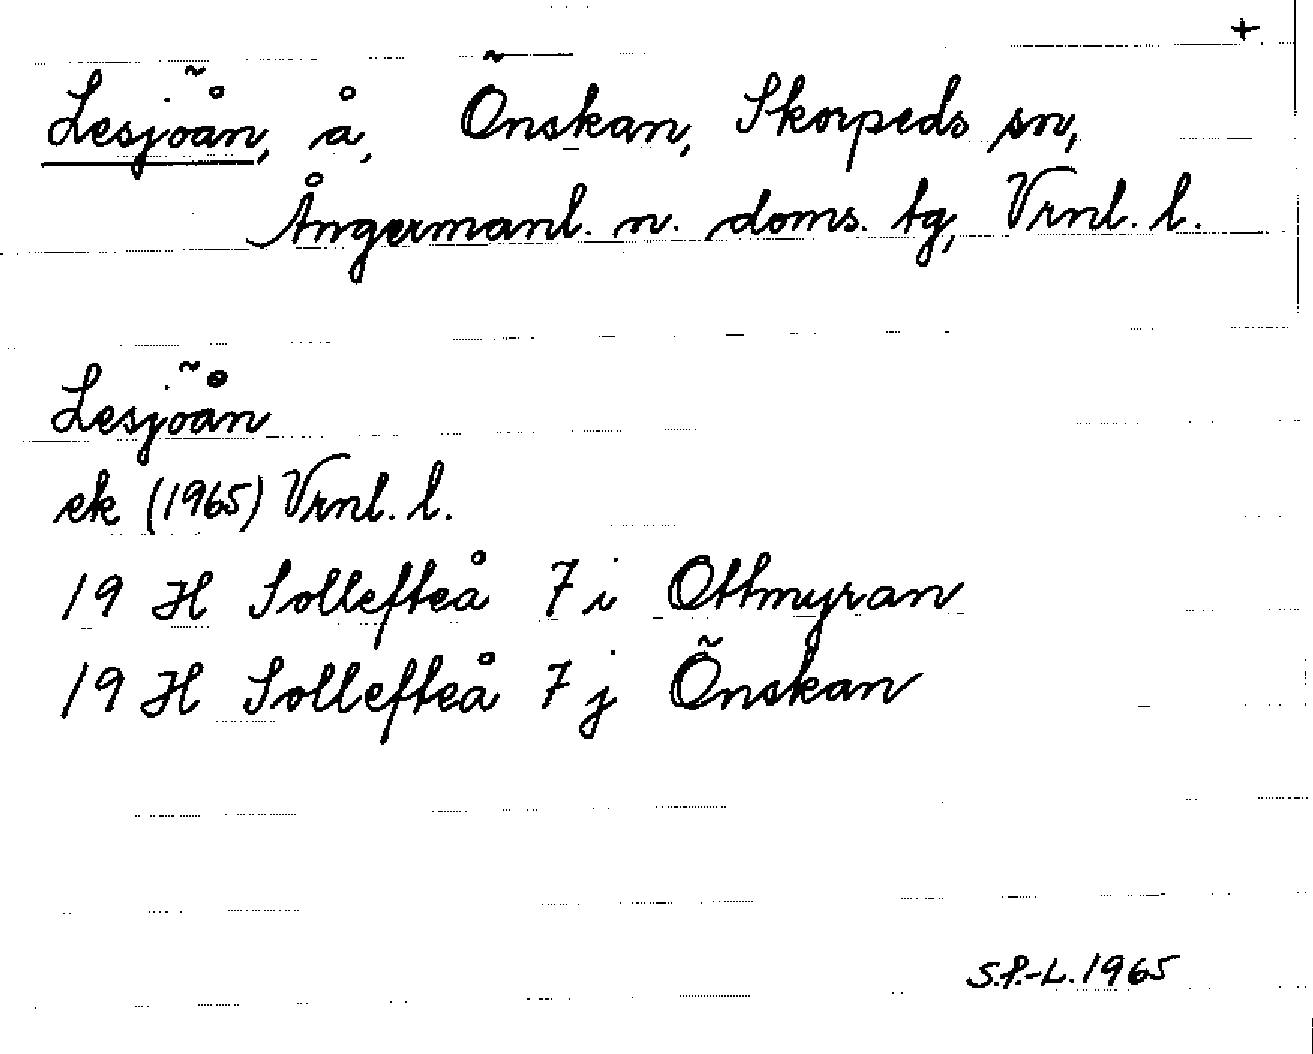 +
Lesjöån, å, Önskan, Skorpeds sn,
Ångermanl. n. doms. tg, Vrnl. l.
Lesjöån
ek (1965) Vrnl. l.
19 H Sollefteå 7 i Ottmyran
19 H Sollefteå 7 j Önskan
S.P.-L. 1965